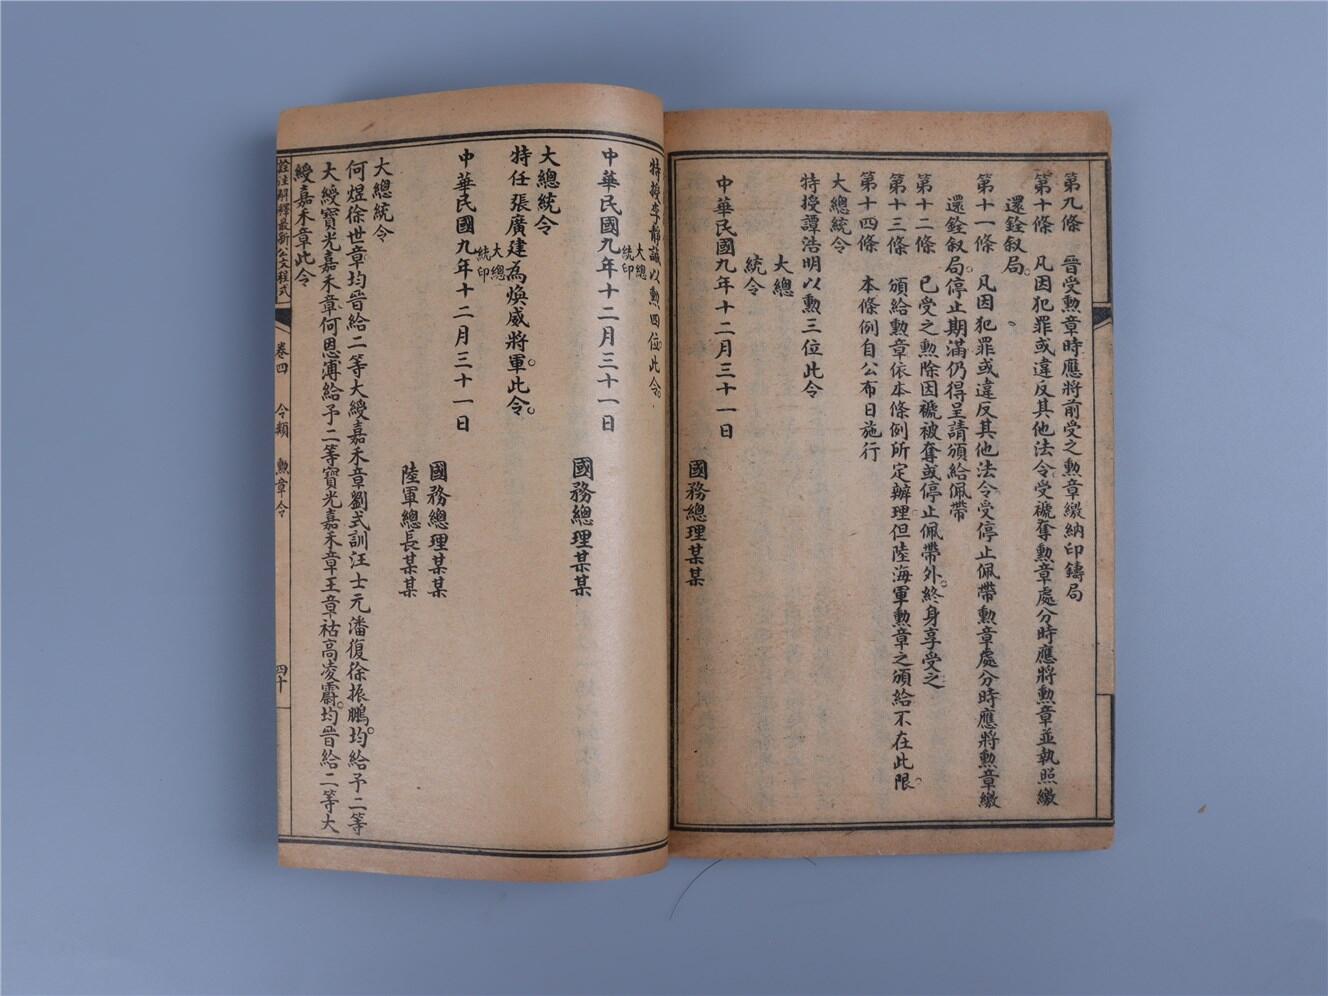 第九條　晉受勲章時應將前受之勲章繳納印鑄局
第十條　凡因犯罪或違反其他法令受褫奪勲章處分時應將勲章並執照繳
還銓叙局。
第十一條　凡因犯罪或違反其他法令受停止佩帶勲章處分時應將勲章繳
還銓叙局。停止期滿仍得呈請頒給佩帶
第十二條　已受之勲除因褫被奪或停止佩帶外。終身享受之
第十三條　頒給勲章依本條例所定辦理。但陸海軍勲章之頒給不在此限。
第十四條　本條例自公布日施行
大總統令
特授譚浩明以勲三位此令
大總
統令
中華民國九年十二月三十一日
國務總理某某
特授李靜誠以勲四位。此令。
大總
統印
中華民國九年十二月三十一日
國務總理某某
大總統令
特任張廣建為煥威將軍。此令。
大總
統印
中華民國九年十二月三十一日
國務總理某某
陸軍總長某某
大總統令
何煜徐世章均晉給二等大綬嘉禾章劉式訓汪士元潘復徐振鵬。均給予二等
大綬寶光嘉禾章何恩溥給予二等寶光嘉禾章王章祜高凌霨。均晉給二等大
綬嘉禾章此令
詮注解釋最新公文程式
卷四　令類　勲章令
四十